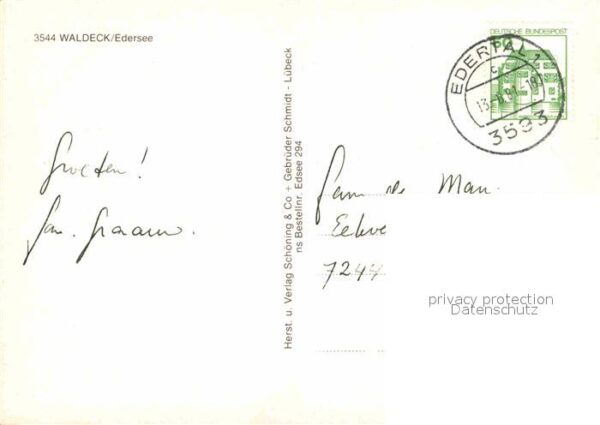 3544 WALDECK/Edersee
DEUTSCHE BUNDESPOST
50
EDERTAL 1
c
13.-8.81-18
3593
Groeten!
fam.
fam de Man.
7244
Herst. u. Verlag Schöning & Co + Gebrüder Schmidt - Lübeck
ns Bestellnr. Edsee 294
privacy protection
Datenschutz